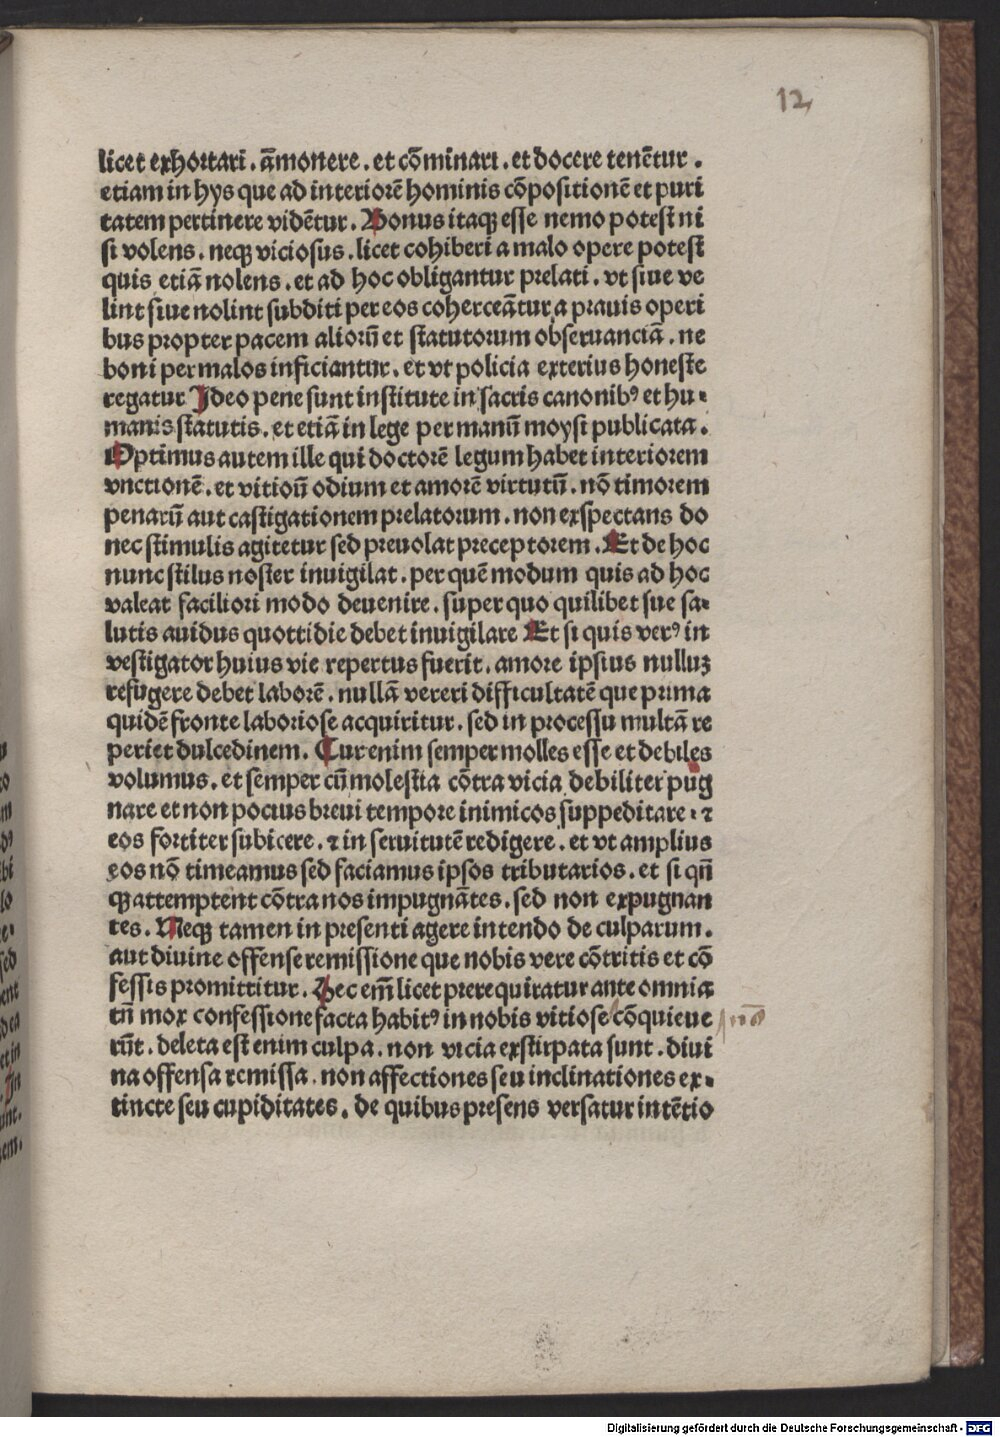 12
licet exhortari . ãmonere . et cõminari . et docere tenẽtur .
etiam in hys que ad interiorẽ hominis cõpositionẽ et puri
tatem pertinere vidẽtur . Bonus itaqꝫ esse nemo potest ni
si volens . neqꝫ viciosus . licet cohiberi a malo opere potest
quis etiã nolens . et ad hoc obligantur prelati . vt siue ve
lint siue nolint subditi per eos coherceãtur a prauis operi
bus propter pacem aliorũ et statutorum obseruanciã . ne
boni per malos inficiantur . et vt policia exterius honeste
regatur Ideo pene sunt institute in sacris canonibꝰ et hu⸗
manis statutis . et etiã in lege per manũ moysi publicata .
Optimus autem ille qui doctorẽ legum habet interiorem
vnctionẽ . et vitioũ odium et amorẽ virtutũ . nõ timorem
penarũ aut castigationem prelatorum . non exspectans do
nec stimulis agitetur sed preuolat preceptorem . Et de hoc
nunc stilus noster inuigilat . per quẽ modum quis ad hoc
valeat faciliori modo deuenire . super quo quilibet sue sa⸗
lutis auidus quottidie debet inuigilare Et si quis verꝰ in
vestigator huius vie repertus fuerit . amore ipsius nulluꝫ
refugere debet laborẽ . nullã vereri difficultatẽ que prima
quidẽ fronte laboriose acquiritur . sed in processu multã re
periet dulcedinem . Cur enim semper molles esse et debiles
volumus . et semper cũ molestia cõtra vicia debiliter pug
nare et non pocius breui tempore inimicos suppeditare . ⁊
eos fortiter subicere . ⁊ in seruitutẽ redigere . et vt amplius
eos nõ timeamus sed faciamus ipsos tributarios . et si qñ
qꝫ attemptent cõtra nos impugnãtes . sed non expugnan
tes . Neqꝫ tamen in presenti agere intendo de culparum .
aut diuine offense remissione que nobis vere cõtritis et cõ
fessis promittitur . Hec em̃ licet prerequiratur ante omnia
tñ mox confessione facta habitꝰ in nobis vitiose cõquieue
rũt . deleta est enim culpa . non vicia exstirpata sunt . diui
na offensa remissa . non affectiones seu inclinationes ex⸗
tincte seu cupiditates . de quibus presens versatur intẽtio
Digitalisierung gefördert durch die Deutsche Forschungsgemeinschaft - DFG